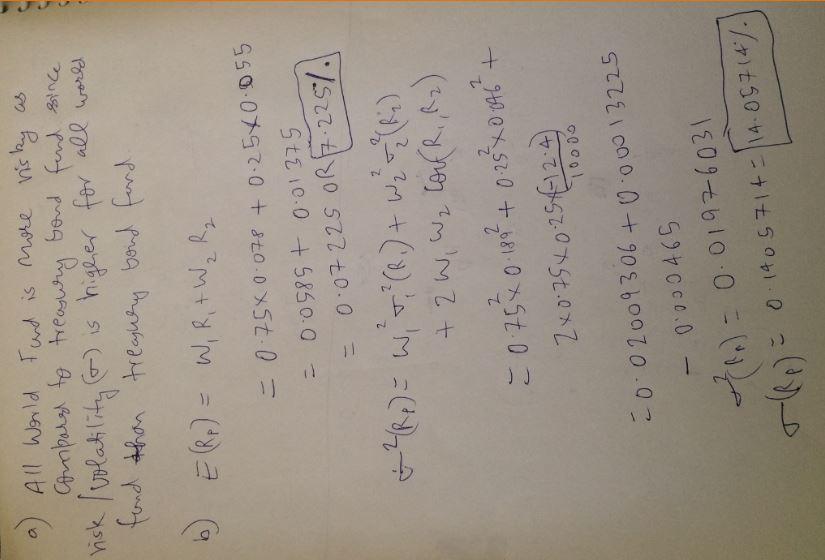 a) All World Fund is more risky as
compared to treasury bond fund since
risk/volatility (σ) is higher for all world
fund than treasury bond fund.
b) E(Rp) = W₁R₁ + W₂R₂
= 0.75×0.078 + 0.25×0.055
= 0.0585 + 0.01375
= 0.07225 OR 7.225%.
σ²(Rp) = W₁²σ₁²(R₁) + W₂²σ₂²(R₂)
+ 2W₁W₂ Cov(R₁R₂)
= 0.75²×0.189² + 0.25²×0.046² +
2×0.75×0.25×(-12.4)/10000
= 0.02009306 + 0.00013225
- 0.000465
σ²(Rp) = 0.01976031
σ(Rp) = 0.1405714 = 14.05714%.